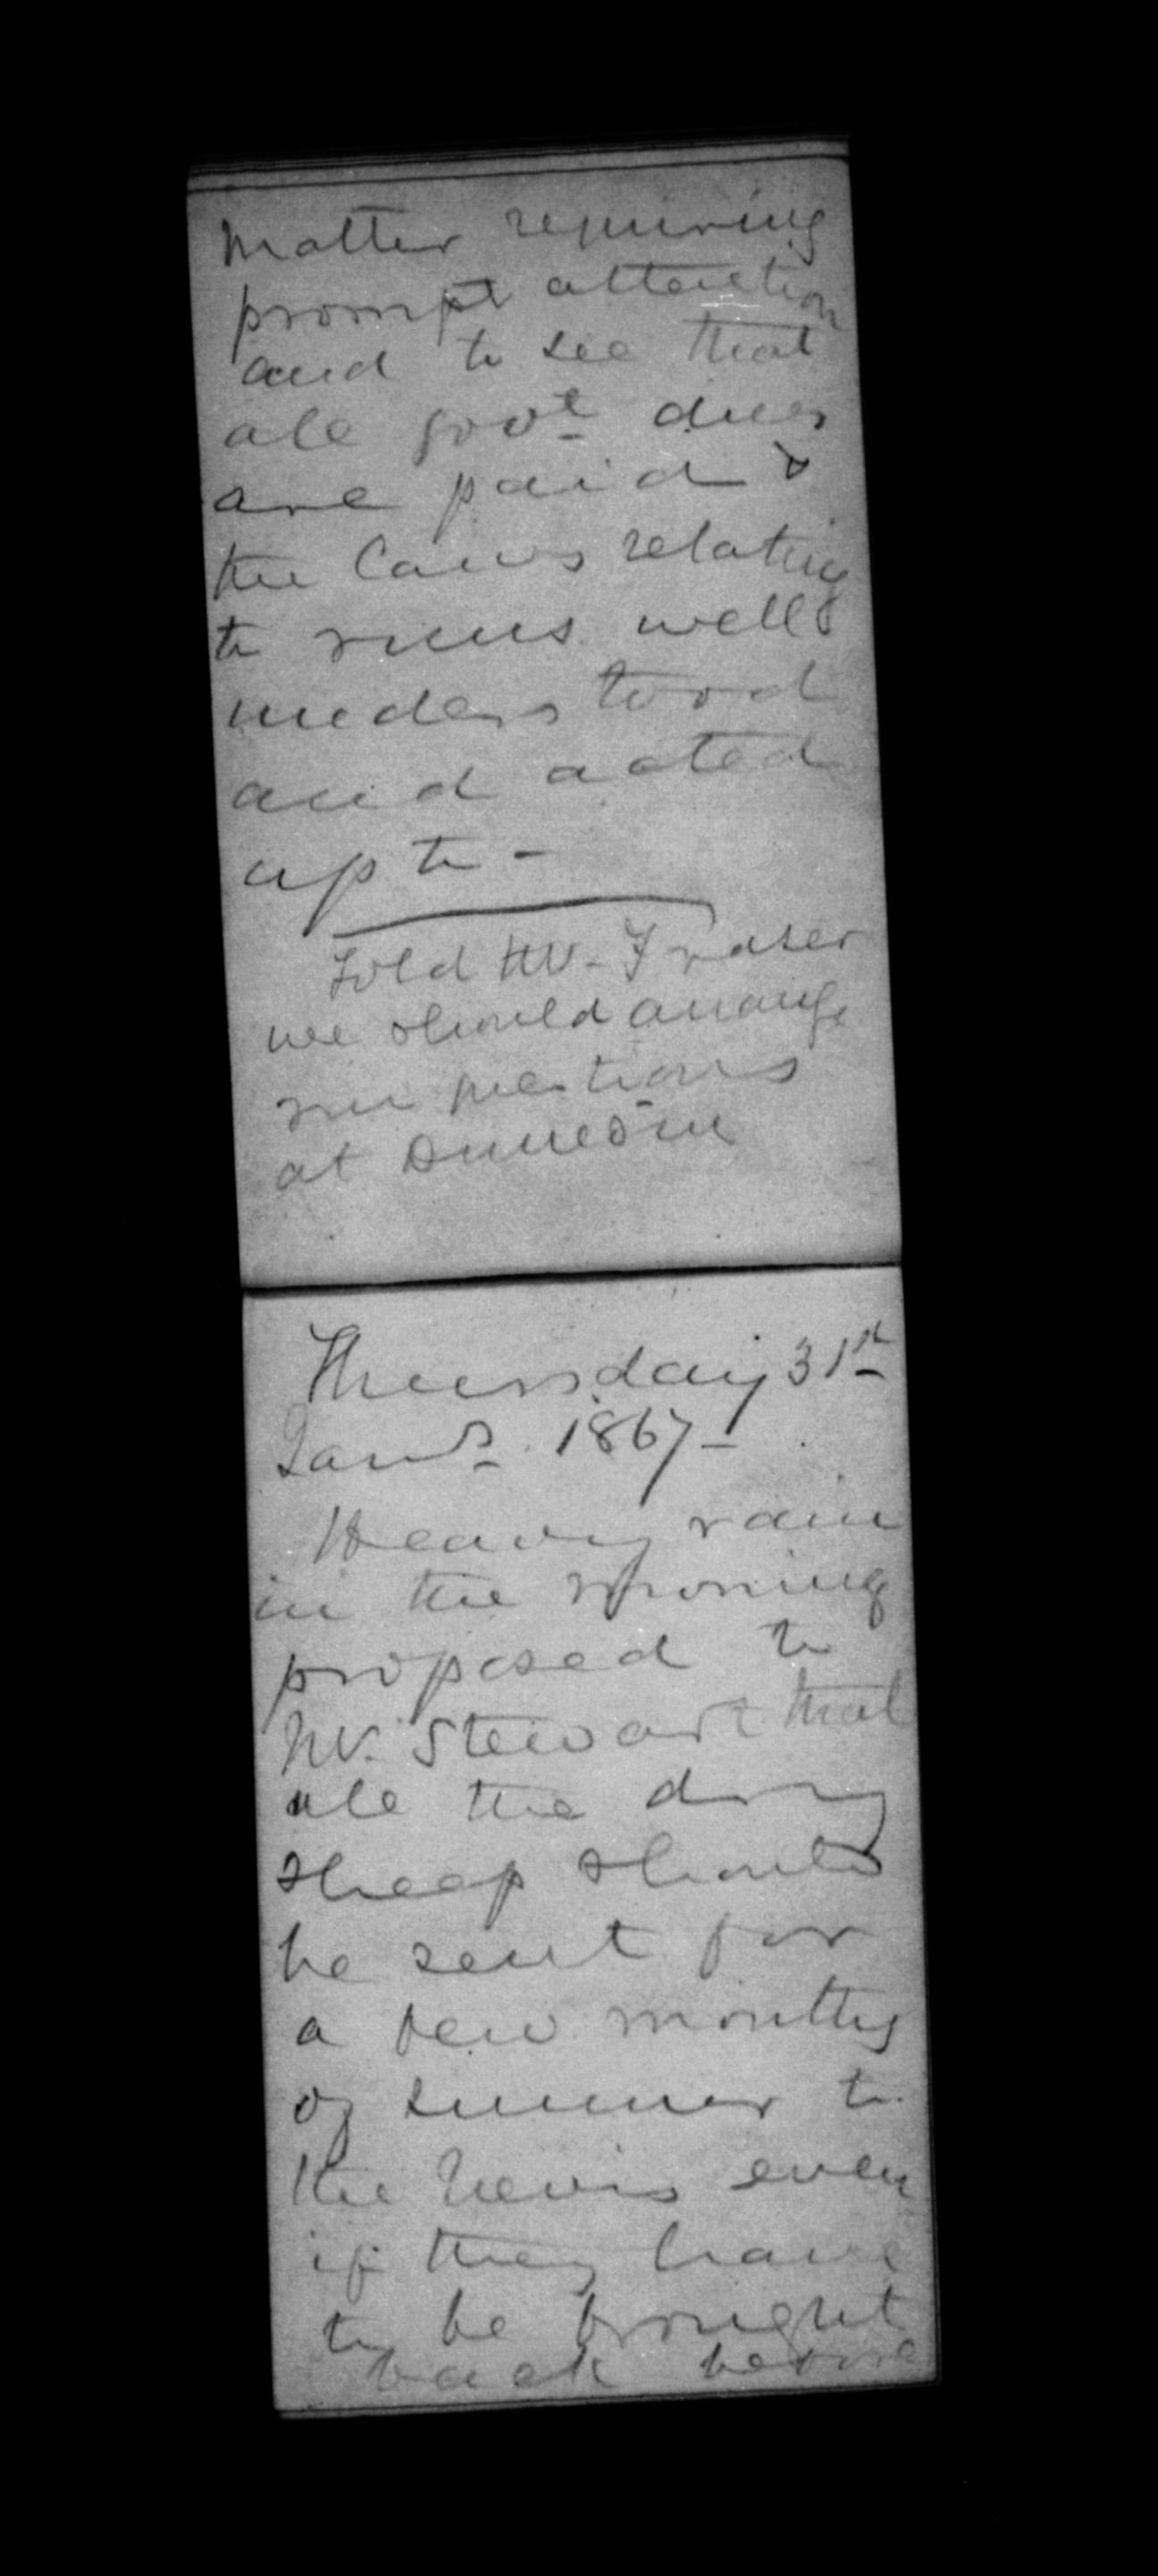 matter requiring
prompt attention
and to see that
all govt dues
are paid &
the laws relating
to runs well
understood
and acted
up to -
Told Mr. Fraser
we should arrange
run questions
at Dunedin
Thursday 31st
Jany. 1867 -
Heavy rain
in the morning
proposed to
Mr. Stewart that
all the dry
sheep should
be sent for
a few months
of summer to
the Nevis even
if they have
to be brought
back before